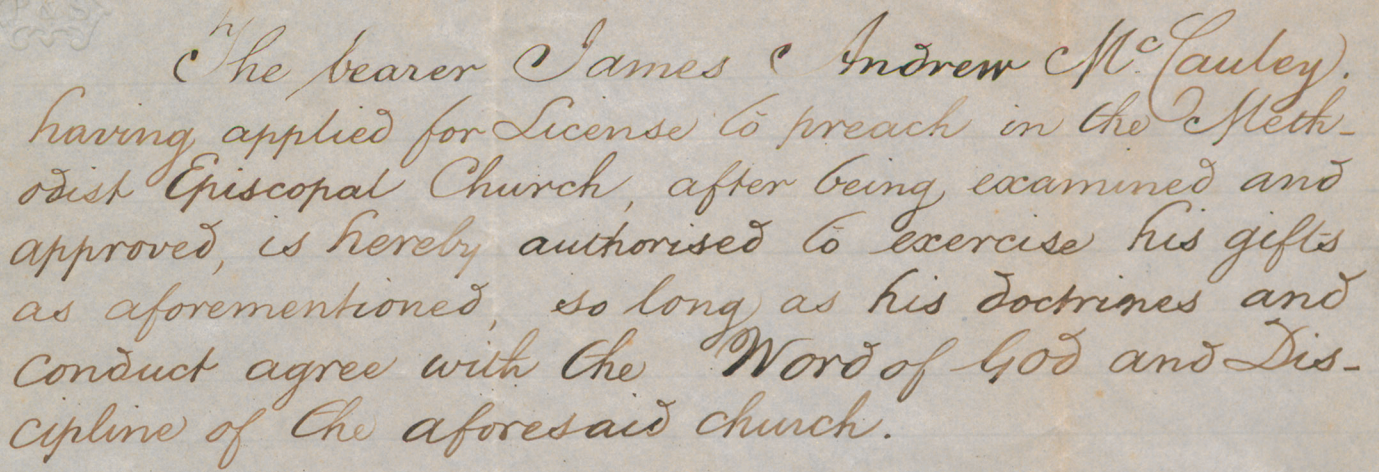 The bearer James Andrew McCauley.
having applied for License to preach in the Meth-
odist Episcopal Church, after being examined and
approved, is hereby authorised to exercise his gifts
as aforementioned, so long as his doctrines and
conduct agree with the Word of God and Dis-
cipline of the aforesaid church.